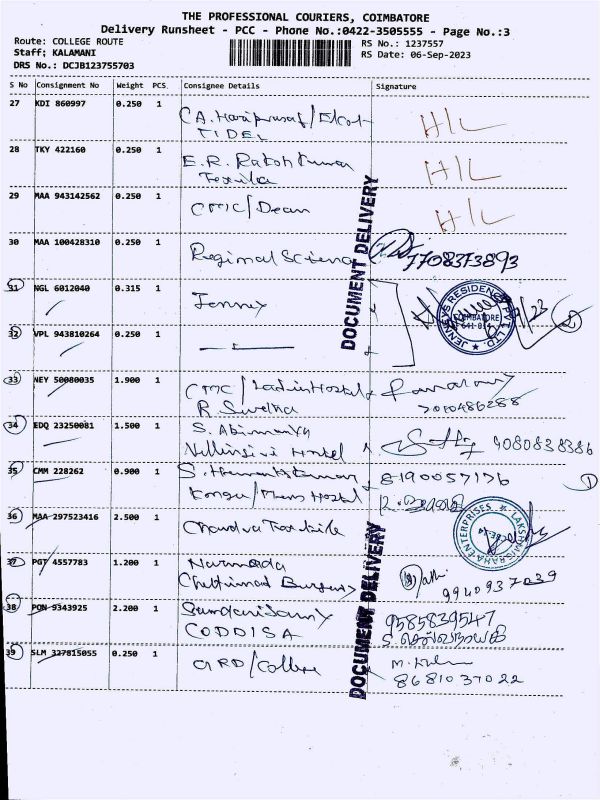 THE PROFESSIONAL COURIERS, COIMBATORE
Delivery Runsheet - PCC - Phone No.:0422-3505555 - Page No.:3
Route: COLLEGE ROUTE
RS No.: 1237557
Staff: KALAMANI
RS Date: 06-Sep-2023
DRS No.: DCJB123755703
S No Consignment No Weight PCS Consignee Details Signature
27 KDI 860997 0.250 1
TIDEL
H/L
28 TKY 422160 0.250 1
E.R.
H/L
29 MAA 943142562 0.250 1
CMC/Dean
H/L
DOCUMENT DELIVERY
30 MAA 100428310 0.250 1
Regional Science
7708373893
31 NGL 6012040 0.315 1
Jenney
JENNEYS RESIDENCY PVT LTD
COIMBATORE
641 014
32 VPL 943810264 0.250 1
33 NEY 50080035 1.900 1
CMC/Ladies Hostel
R. Swetha
7010486288
34 EDQ 23250081 1.500 1
S. Abimanya
Hostel
9080838386
35 CMM 228262 0.900 1
Kongu/Mens Hostel
8190057176
36 MAA 297523416 2.500 1
Chandra Textile
LAKSHMIGRAHA ENTERPRISES
DOCUMENT DELIVERY
37 PGT 4557783 1.200 1
Narmada
Chettinad
9940937039
38 PON 9343925 2.200 1
CODDISA
9585839547
39 SLM 327815055 0.250 1
GRD/College
8681037022